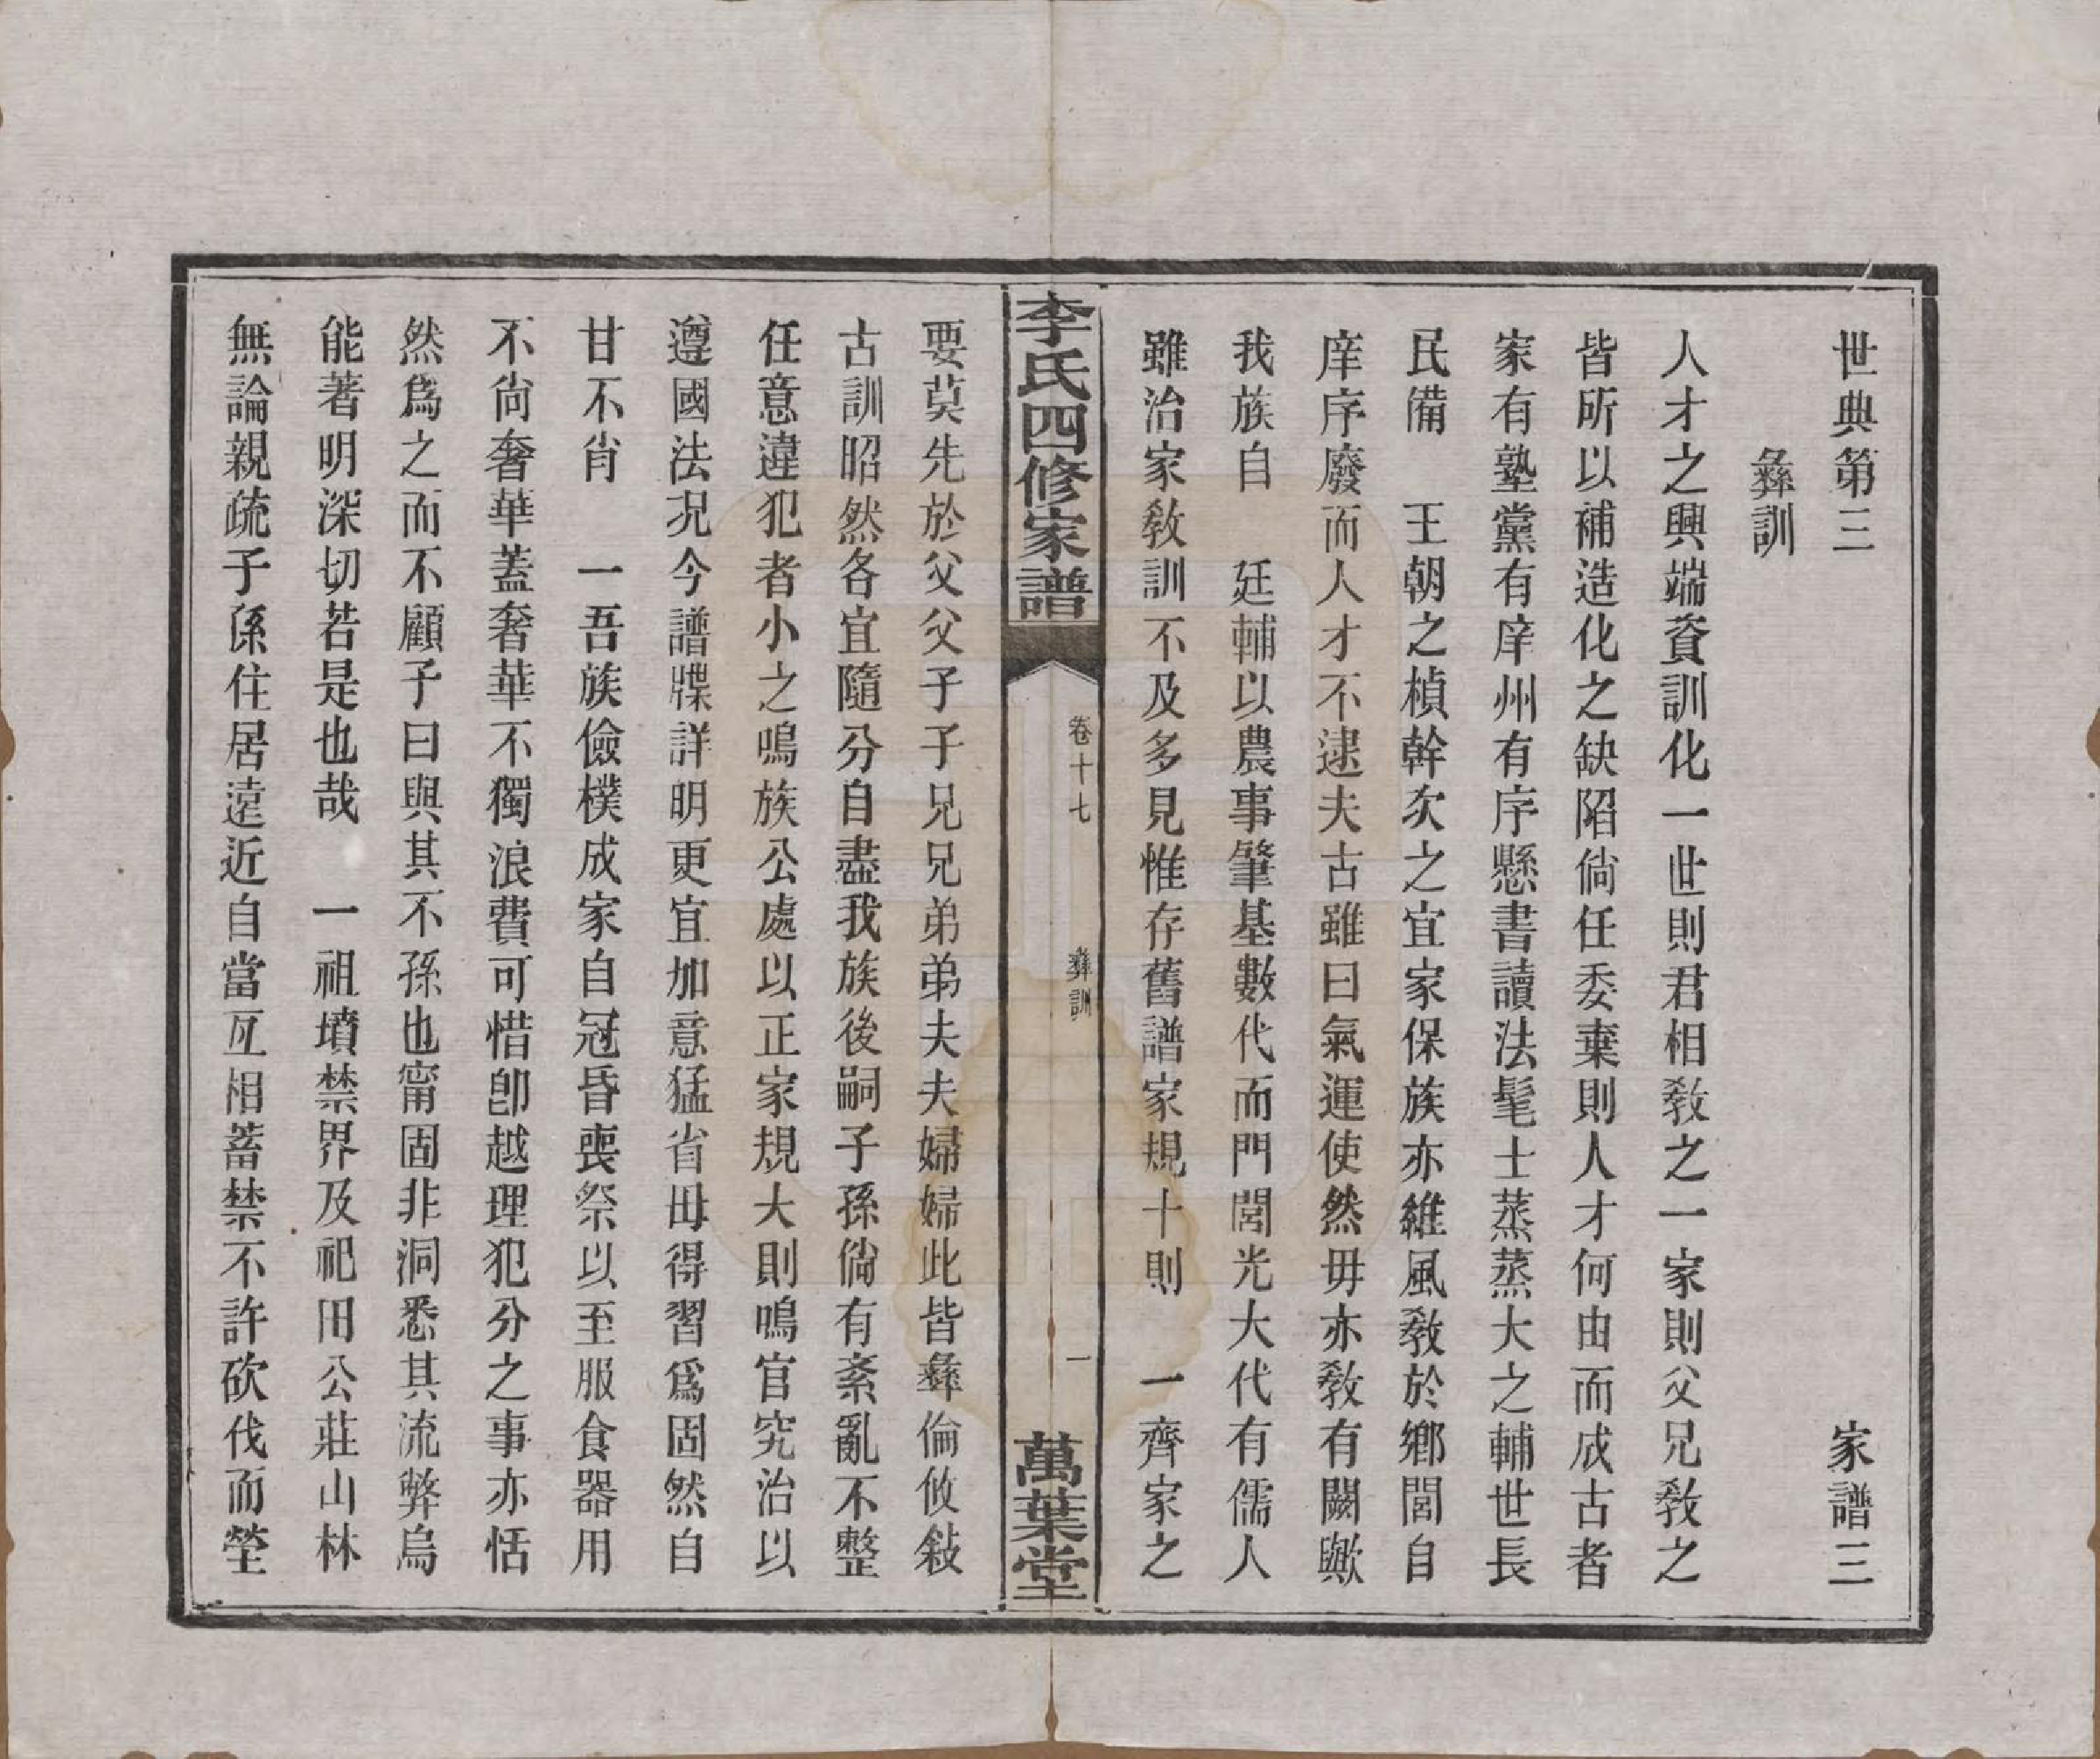 世典第三　家譜三
彝訓
人才之興端資訓化一世則君相敎之一家則父兄敎之
皆所以補造化之缺陷倘任委棄則人才何由而成古者
家有塾黨有庠州有序懸書讀法髦士蒸蒸大之輔世長
民備　王朝之楨幹次之宜家保族亦維風敎於鄉閭自
庠序廢而人才不逮夫古雖曰氣運使然毋亦敎有闕歟
我族自　廷輔以農事肇基數代而門閭光大代有儒人
雖治家敎訓不及多見惟存舊譜家規十則　一齊家之
李氏四修家譜　卷十七　彝訓　一　萬葉堂
要莫先於父父子子兄兄弟弟夫夫婦婦此皆彝倫攸敍
古訓昭然各宜隨分自盡我族後嗣子孫倘有紊亂不整
任意違犯者小之鳴族公處以正家規大則鳴官究治以
遵國法况今譜牒詳明更宜加意猛省毋得習爲固然自
甘不肖　一吾族儉樸成家自冠昏喪祭以至服食器用
不尙奢華蓋奢華不獨浪費可惜卽越理犯分之事亦恬
然爲之而不顧子曰與其不孫也甯固非洞悉其流弊烏
能著明深切若是也哉　一祖墳禁界及祀田公莊山林
無論親疏子係住居遠近自當互相蓄禁不許砍伐而塋